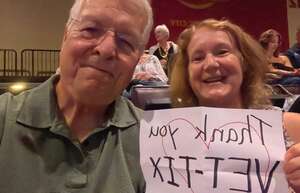 Thank you
VET-TIX